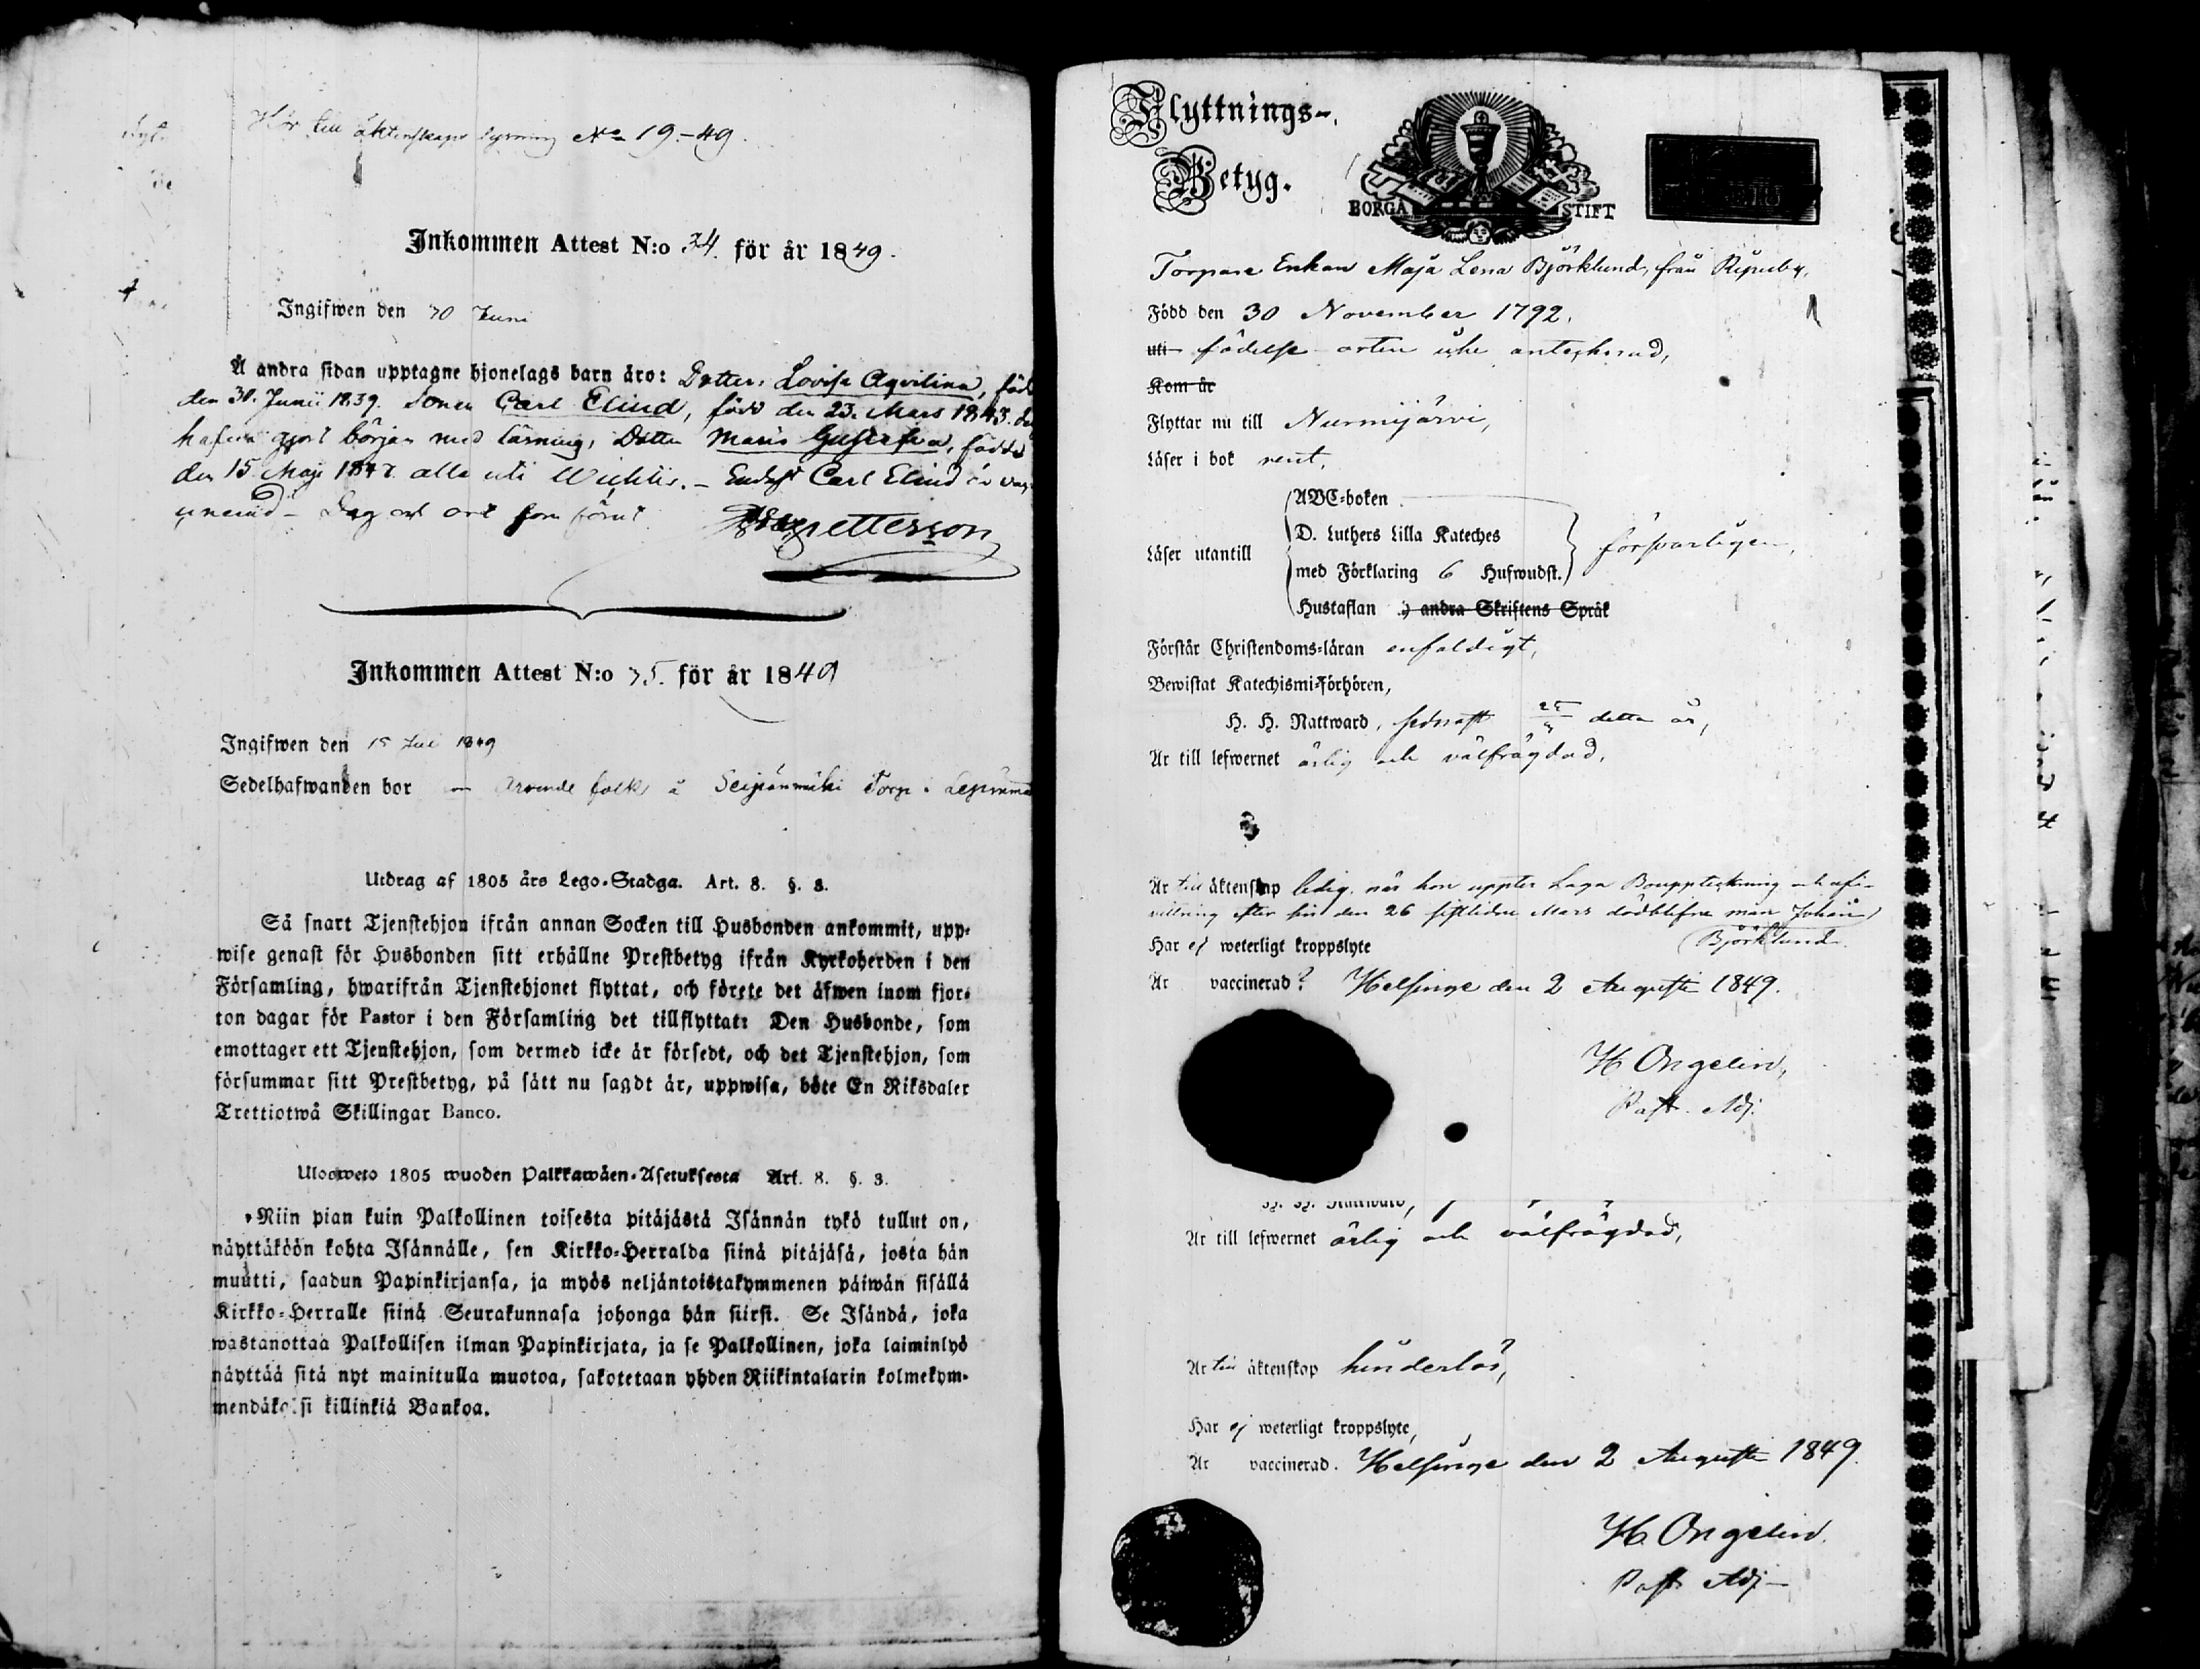 Hör till äktenskaps lysning No 19-49.
Inkommen Attest N:o 34. för år 1849.
Ingifwen den 30 Juni
Å andra sidan upptagne hjonelags barn äro: Dotter, Lovisa Aqvilina, föd
den 30. Junii 1839. Sonen Carl Elind, född den 23. Mars 1843.
hafva gjort början med läsning, Dotter Maria Gustafva, född
den 15. Maji 1847. alla uti Wichtis. - Endast Carl Elind är
Dag och ort som förut.
petterson
Inkommen Attest N:o 35. för år 1849
Ingifwen den 15 Juli 1849
Sedelhafwanden bor folk å Torp i
Utdrag af 1805 års Lego-Stadga. Art. 8. §. 3.
Så snart Tjenstehjon ifrån annan Socken till Husbonden ankommit, upp-
wise genast för Husbonden sitt erhållne Prestbetyg ifrån Kyrkoherden i den
Församling, hwarifrån Tjenstehjonet flyttat, och förete det äfwen inom fjor-
ton dagar för Pastor i den Församling det tillflyttat: Den Husbonde, som
emottager ett Tjenstehjon, som dermed icke är försedt, och det Tjenstehjon, som
försummar sitt Prestbetyg, på sätt nu sagdt är, uppwisa, böte En Riksdaler
Trettiotwå Skillingar Banco.
Ulosweto 1805 wuoden Palkkawäen-Asetuksesta Art. 8. §. 3.
Niin pian kuin Palkollinen toisesta pitäjästä Isännän tykö tullut on,
näyttäköön kohta Isännälle, sen Kirkko-Herralda siinä pitäjäsä, josta hän
muutti, saadun Papinkirjansa, ja myös neljäntoistakymmenen päiwän sisällä
Kirkko-Herralle siinä Seurakunnasa johonga hän siirsi. Se Isändä, joka
wastanottaa Palkollisen ilman Papinkirjata, ja se Palkollinen, joka laiminlyö
näyttää sitä nyt mainitulla muotoa, sakotetaan yhden Riikintalarin kolmekym-
mendäkaksi killinkiä Bankoa.
Flyttnings-
Betyg.
BORGÅ STIFT
Torpare Enkan Maja Lena Björklund, från Ripuby,
Född den 30 November 1792.
uti födelse orten icke antecknad,
Kom år
Flyttar nu till Nurmijärvi,
Läser i bok rent,
ABC-boken
D. Luthers Lilla Kateches
Läser utantill försvarligen,
med Förklaring 6 Hufwudst.
Hustaflan andra Skriftens Språk
Förstår Christendoms-läran enfaldigt,
Bewistat Katechismi-Förhören,
H. H. Nattward, sednast detta år,
Är till lefwernet ärlig och välfrägdad,
Är till äktenskap ledig, när hon uppter Laga Bouppteckning och afv-
vittring efter sin den 26 sistlidne Mars dödblifne man Johan
Björklund.
Har ej weterligt kroppslyte
Är vaccinerad? Helsinge den 2 Augusti 1849.
H Ongelin,
Past. Adj.
H. H. Nattward,
Är till lefwernet ärlig och välfrägdad,
Är till äktenskap hinderlös,
Har ej weterligt kroppslyte,
Är vaccinerad. Helsinge den 2 Augusti 1849.
H Ongelin.
Past. Adj-